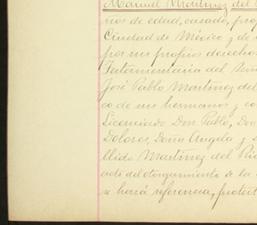 Manuel Martinez del
ños de edad, casado, pro
Ciudad de México y de
por sus propios derechos
Testamentaria del Seño
José Pablo Martinez del
co de sus hermanos y co
Licenciado Don Pablo, Don
Dolores, Doña Angela y
llido Martinez del Rio
acto del otorgamiento de la
se hará referencia, protest